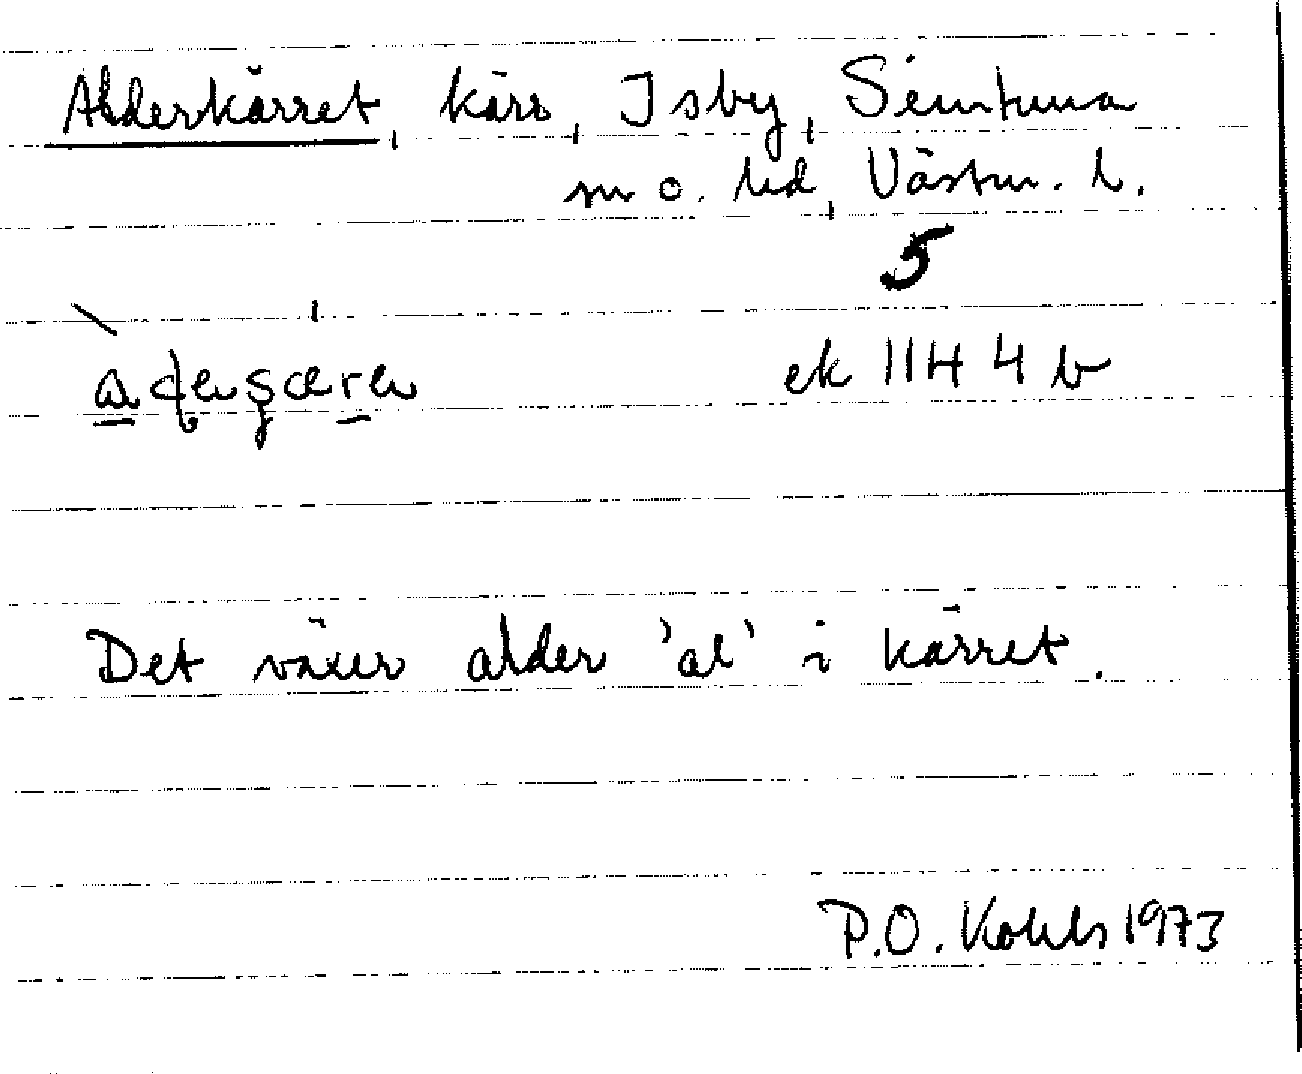 Alderkärret, kärr, Isby, Simtuna
sn o. hd, Västm. l.
5
ek 11H 4 b
Det växer alder 'al' i kärret.
P.O. Kohls 1973